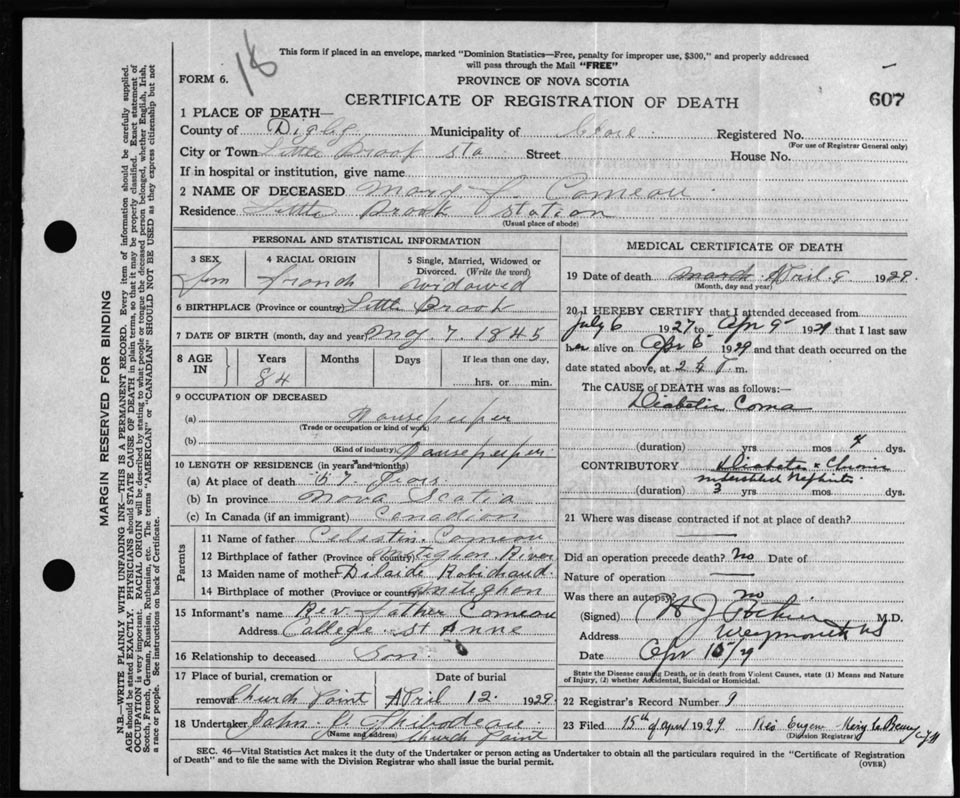 18
This form if placed in an envelope, marked "Dominion Statistics—Free, penalty for improper use, $300," and properly addressed
will pass through the Mail "FREE"
FORM 6.
PROVINCE OF NOVA SCOTIA
CERTIFICATE OF REGISTRATION OF DEATH
607
MARGIN RESERVED FOR BINDING
N.B.—WRITE PLAINLY WITH UNFADING INK—THIS IS A PERMANENT RECORD. Every item of information should be carefully supplied.
AGE should be stated EXACTLY. PHYSICIANS should state CAUSE OF DEATH in plain terms, so that it may be properly classified. Exact statement of
OCCUPATION is very important. RACIAL ORIGIN will be described by stating to what people or tongue the deceased person belonged, whether English, Irish,
Scotch, French, German, Russian, Ruthenian, etc. The terms "AMERICAN" or "CANADIAN" SHOULD NOT BE USED as they express citizenship but not
a race or people. See instructions on back of Certificate.
1 PLACE OF DEATH—
County of Digby Municipality of Clare Registered No.
(For use of Registrar General only)
City or Town Little Brook Sta Street House No.
If in hospital or institution, give name
2 NAME OF DECEASED J. Comeau
Residence Little Brook Station
(Usual place of abode)
PERSONAL AND STATISTICAL INFORMATION
3 SEX
4 RACIAL ORIGIN
5 Single, Married, Widowed or Divorced. (Write the word)
fem
widowid
6 BIRTHPLACE (Province or country) Little Brook
7 DATE OF BIRTH (month, day and year) 7. 1845
8 AGE IN
Years
Months
Days
If less than one day,
84
hrs. or min.
9 OCCUPATION OF DECEASED
(a) Housekeeper
(Trade or occupation or kind of work)
(b) Housekeeper
(Kind of industry)
10 LENGTH OF RESIDENCE (in years and months)
(a) At place of death 57
(b) In province Nova Scotia
(c) In Canada (if an immigrant) Canadian
Parents
11 Name of father Celestin Comeau
12 Birthplace of father (Province or country) River
13 Maiden name of mother Robichaud
14 Birthplace of mother (Province or country)
15 Informant's name Rev. father Comeau
Address College St Anne
16 Relationship to deceased Son
17 Place of burial, cremation or removal
Date of burial
Church Point April 12 1929
18 Undertaker John Thibodeau
(Name and address) Church Point
MEDICAL CERTIFICATE OF DEATH
19 Date of death March April 9 1929.
(Month, day and year)
20 I HEREBY CERTIFY that I attended deceased from
July 6 1927 to Apr 9 1929 that I last saw
her alive on Apr 1929 and that death occurred on the
date stated above, at m.
The CAUSE OF DEATH was as follows:—
Diabetic Coma
(duration) yrs mos dys.
CONTRIBUTORY Diabetes & Chronic
Nephritis
(duration) 3 yrs mos dys.
21 Where was disease contracted if not at place of death?
Did an operation precede death? No Date of
Nature of operation
Was there an autopsy? no
(Signed) M.D.
Address Weymouth NS
Date Apr 10/29
State the Disease causing Death, or in death from Violent Causes, state (1) Means and Nature of Injury, (2) whether Accidental, Suicidal or Homicidal.
22 Registrar's Record Number 9
23 Filed 15th of April 1929
(Division Registrar)
SEC. 46—Vital Statistics Act makes it the duty of the Undertaker or person acting as Undertaker to obtain all the particulars required in the "Certificate of Registration
of Death" and to file the same with the Division Registrar who shall issue the burial permit.
(OVER)